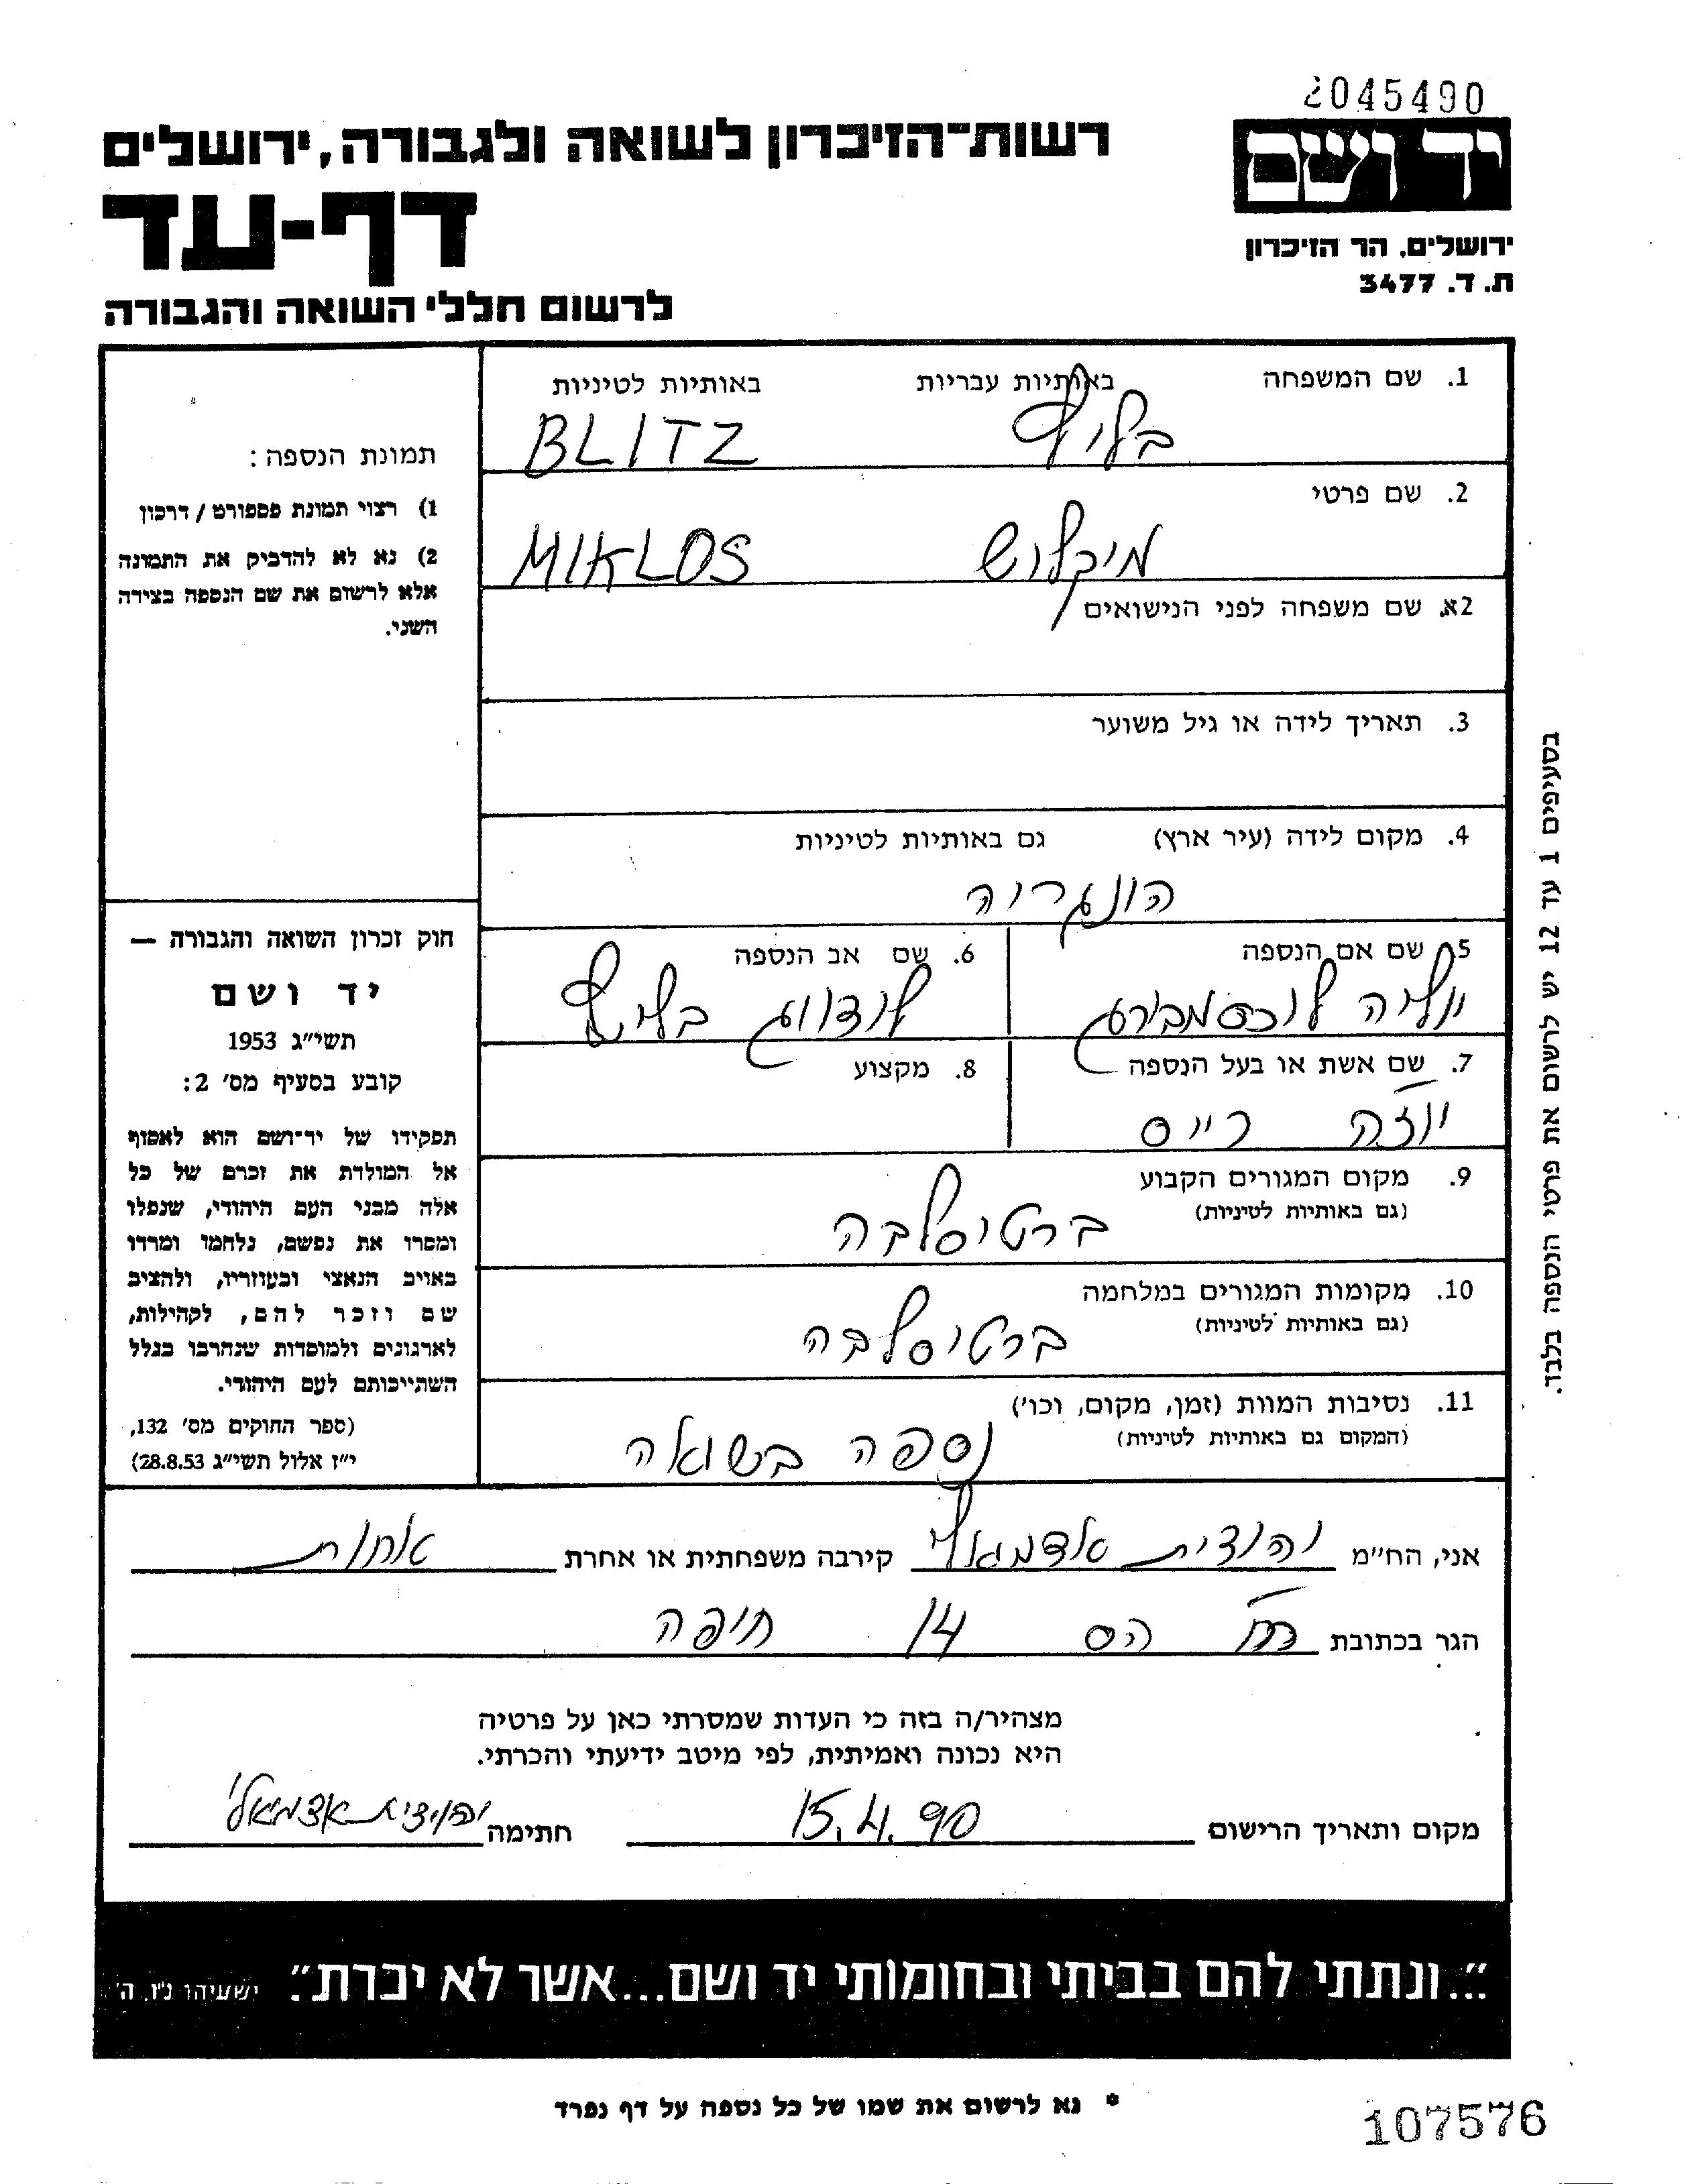 2045490
יד ושם
רשות־הזיכרון לשואה ולגבורה, ירושלים
דף-עד
ירושלים, הר הזיכרון
ת. ד. 3477
לרשום חללי השואה והגבורה
1. שם המשפחה באותיות עבריות באותיות לטיניות
בליץ BLITZ
2. שם פרטי
מיקלוש MIKLOS
2א. שם משפחה לפני הנישואים
3. תאריך לידה או גיל משוער
4. מקום לידה (עיר ארץ) גם באותיות לטיניות
הונגריה
5. שם אם הנספה
יוליה לוכסמבורג
6. שם אב הנספה
לודווג בליץ
7. שם אשת או בעל הנספה
רייס
8. מקצוע
9. מקום המגורים הקבוע
(גם באותיות לטיניות)
ברטיסלבה
10. מקומות המגורים במלחמה
(גם באותיות לטיניות)
ברטיסלבה
11. נסיבות המוות (זמן, מקום, וכו')
(המקום גם באותיות לטיניות)
נספה בשואה
תמונת הנספה:
1) רצוי תמונת פספורט / דרכון
2) נא לא להדביק את התמונה
אלא לרשום את שם הנספה בצידה
השני.
חוק זכרון השואה והגבורה —
יד ושם
תשי״ג 1953
קובע בסעיף מס׳ 2:
תפקידו של יד־ושם הוא לאסוף
אל המולדת את זכרם של כל
אלה מבני העם היהודי, שנפלו
ומסרו את נפשם, נלחמו ומרדו
באויב הנאצי ובעוזריו, ולהציב
שם וזכר להם, לקהילות,
לארגונים ולמוסדות שנחרבו בגלל
השתייכותם לעם היהודי.
(ספר החוקים מס׳ 132,
י״ז אלול תשי״ג 28.8.53)
בסעיפים 1 עד 12 יש לרשום את פרטי הנספה בלבד.
אני, הח״מ יהודית קירבה משפחתית או אחרת אחות
הגר בכתובת הס 14 חיפה
מצהיר/ה בזה כי העדות שמסרתי כאן על פרטיה
היא נכונה ואמיתית, לפי מיטב ידיעתי והכרתי.
מקום ותאריך הרישום 15.4.90 חתימה יהודית
״...ונתתי להם בביתי ובחומותי יד ושם...אשר לא יכרת״. ישעיהו נ״ו, ה׳
* נא לרשום את שמו של כל נספה על דף נפרד
107576